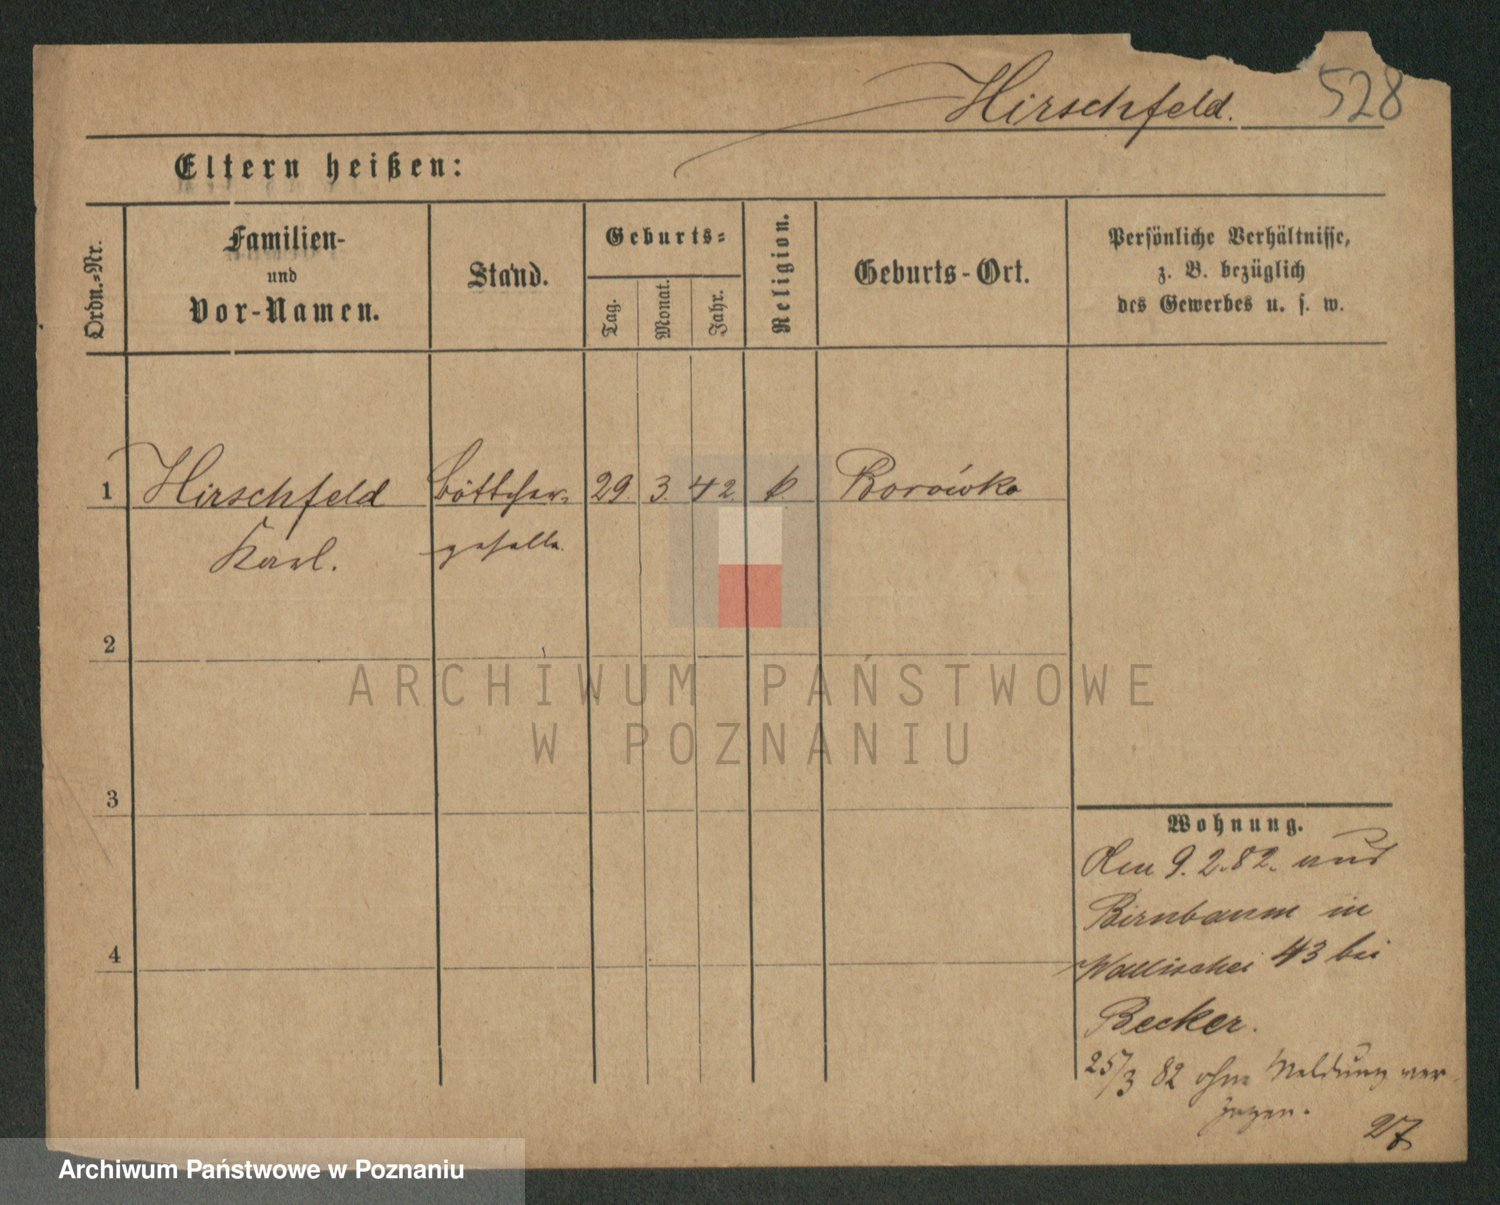 Hirschfeld. 528
Eltern heißen:
Ordn.-Nr.
Familien-
und
Vor-Namen.
Stand.
Geburts-
Tag.
Monat.
Jahr.
Religion.
Geburts-Ort.
Persönliche Verhältnisse,
z. B. bezüglich
des Gewerbes u. s. w.
1 Hirschfeld Böttcher- 29 3. 42. k. Borówko
Karl. geselle.
2
ARCHIWUM PAŃSTWOWE
W POZNANIU
3
Wohnung.
Den 9.2.82. aus
Birnbaum in
4
Wallischei 43 bei
Becker.
25/3 82 ohne Meldung ver-
zogen.
27
Archiwum Państwowe w Poznaniu